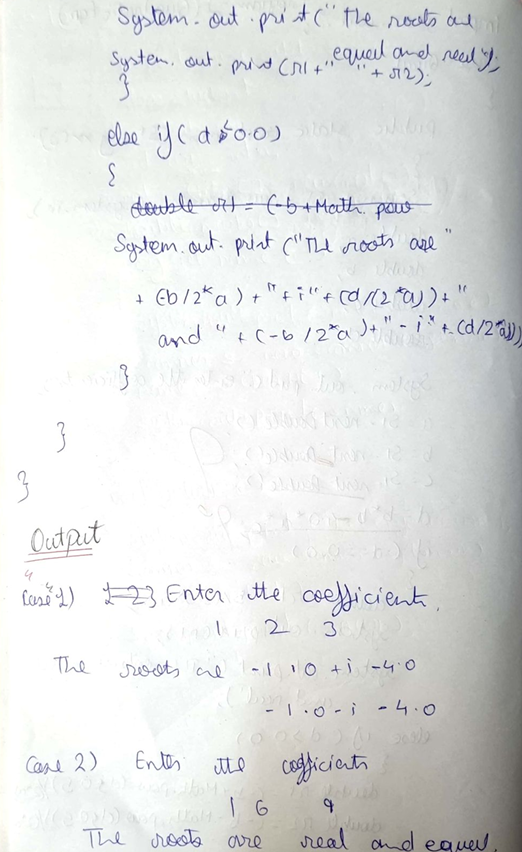 System.out.print("The roots are
equal and real");
System.out.print(r1+" "+r2);
}
else if(d<0.0)
{
double r1 = (-b+Math.pow
System.out.print("The roots are "
+(-b/2*a)+"+i"+(d/(2*a))+"
and "+(-b/2*a)+"-i"+(d/2*a))
}
}
}
Output
Case 1) Enter the coefficients.
1 2 3
The roots are -1.0 +i -4.0
-1.0-i -4.0
Case 2) Enter the coefficients
1 6 9
The roots are real and equal.